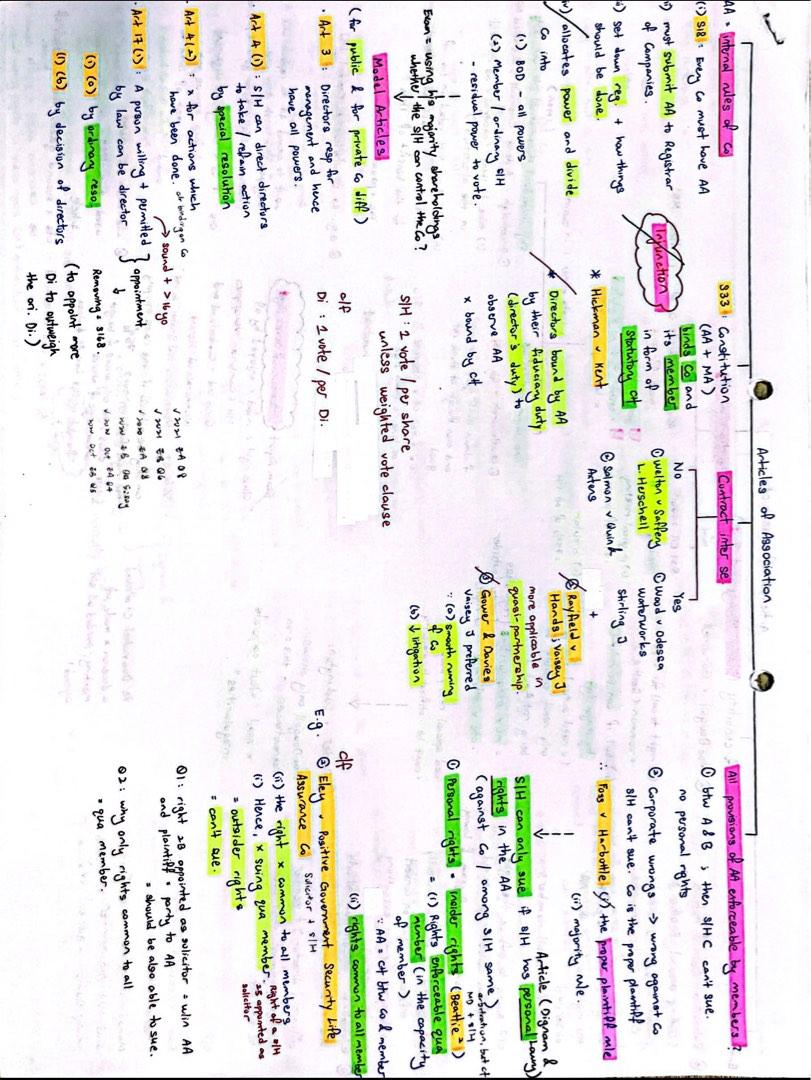 Articles of Association
AA = internal rules of Co
(i) S18 : Every Co must have AA
ii) must submit AA to Registrar
of Companies.
iii) set down reg + how things
should be done.
iv) allocates power and divide
Co into
(1) BOD - all powers
(2) Member / ordinary S/H
- residual power to vote.
Exam = using his majority shareholdings
whether the S/H can control the Co?
Model Articles
(for public & for private Co diff)
· Art 3 : Directors resp for
management and hence
have all powers.
· Art 4 (1) : S/H can direct directors
to take / refrain action
by special resolution
· Art 4 (2) : x for actions which
have been done.
→ sound + > 16 yo
· Art 17 (1) : A person willing + permitted
by law can be director
} appointment
(1) (a) by ordinary reso
(1) (b) by decision of directors
Removing = S168.
(to appoint more
Di to outweigh
the ori. Di.)
S33 : Constitution
(AA + MA)
binds Co and
its member
in form of
statutory ct
Injunction
* Hickman v Kent
* Directors bound by AA
by their fiduciary duty
(director's duty) to
observe AA
x bound by ct
S/H : 1 vote / per share
unless weighted vote clause
o/f
Di : 1 vote / per Di.
Contract inter se
No
① Welton v Saffery
L. Herschell
② Salmon v Quin &
Axtens
Yes
① Wood v Odessa
Waterworks
Stirling J
+
② Rayfield v
Hands ; Vaisey J
more applicable in
quasi-partnership.
③ Gower & Davies
Vaisey J preferred
∵ (a) smooth running
of Co
(b) ↓ litigation
All provisions of AA enforceable by members?
① btw A & B , then S/H C can't sue.
no personal rights
② Corporate wrongs → wrong against Co
S/H can't sue. Co is the proper plaintiff
∴ Foss v Harbottle : (i) the proper plaintiff rule
(ii) majority rule.
Article (Dignam &
S/H can only sue if S/H has personal
rights in the AA
(against Co / among S/H same)
① Personal rights = insider rights (Beattie)
= (i) Rights enforceable qua
member (in the capacity
of member)
∵ AA = ct btw Co & member
(ii) rights common to all member
o/f
E.g. ② Eley v Positive Government Security Life
Assurance Co
solicitor + S/H
(ii) the right x common to all members
(i) Hence, x suing qua member
Right of a S/H
as appointed as
solicitor
= outsider rights
= can't sue.
Q1: right as appointed as solicitor = w/in AA
and plaintiff = party to AA
= should be also able to sue.
Q2: why only rights common to all
= qua member.